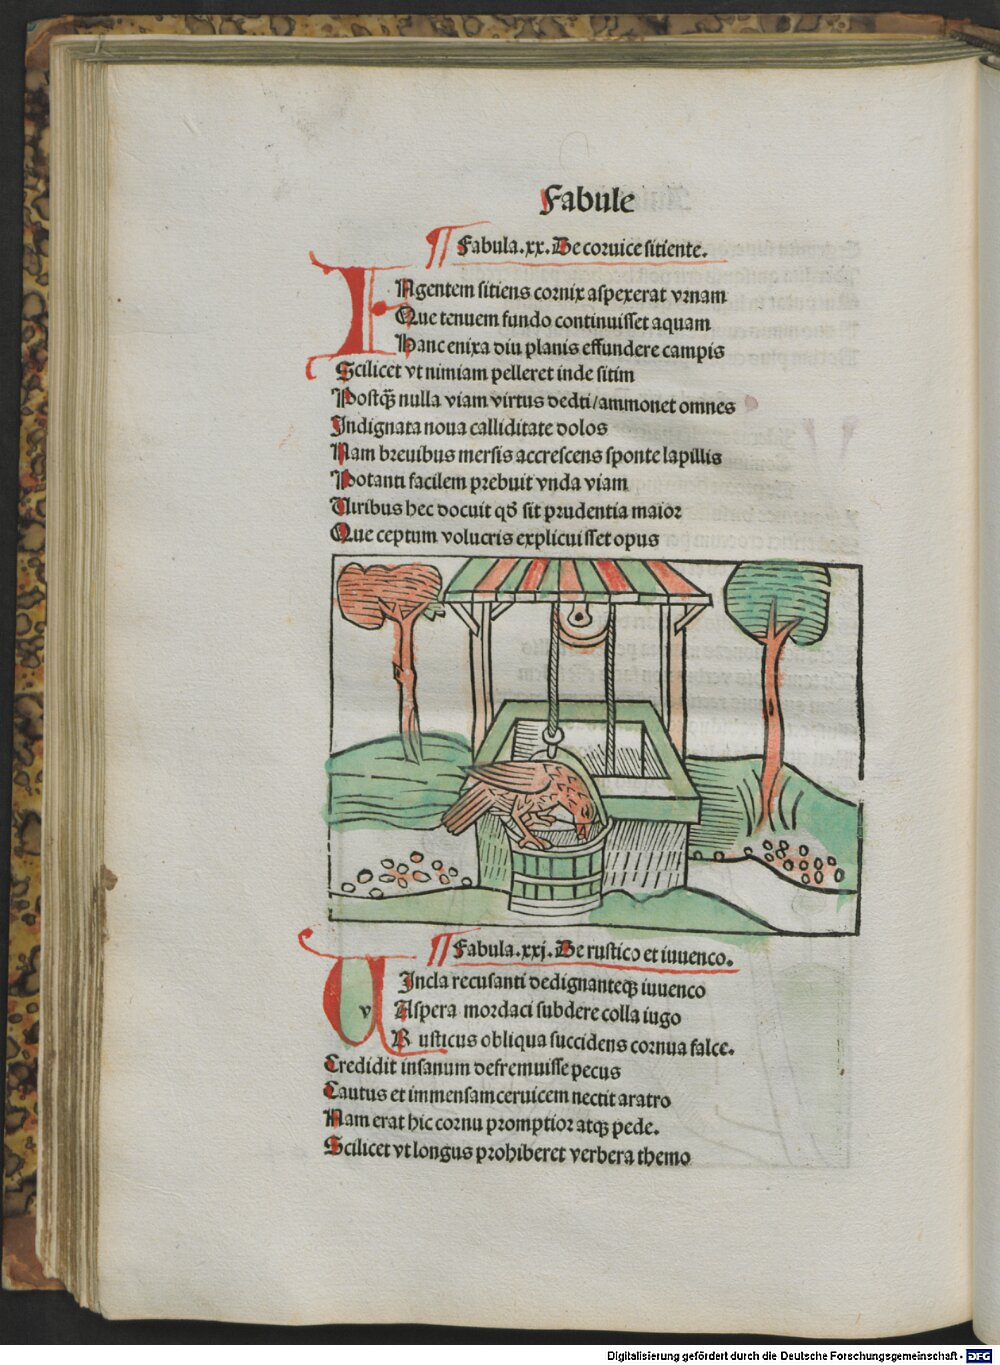 Fabule
¶ Fabula.xx. De cornice sitiente.
INgentem sitiens cornix aspexerat vrnam
Que tenuem fundo continuisset aquam
Hanc enixa diu planis effundere campis
Scilicet vt nimiam pelleret inde sitim
Postqꝫ nulla viam virtus dedti/ammonet omnes
Indignata noua calliditate dolos
Nam breuibus mersis accrescens sponte lapillis
Potanti facilem prebuit vnda viam
Viribus hec docuit qð sit prudentia maior
Que ceptum volucris explicuisset opus
¶ Fabula.xxj. De rustico et iuuenco.
V v Incla recusanti dedignanteqꝫ iuuenco
Aspera mordaci subdere colla iugo
Rusticus obliqua succidens cornua falce.
Credidit insanum defremuisse pecus
Cautus et immensam ceruicem nectit aratro
Nam erat hic cornu promptior atqꝫ pede.
Scilicet vt longus prohiberet verbera themo
Digitalisierung gefördert durch die Deutsche Forschungsgemeinschaft - DFG